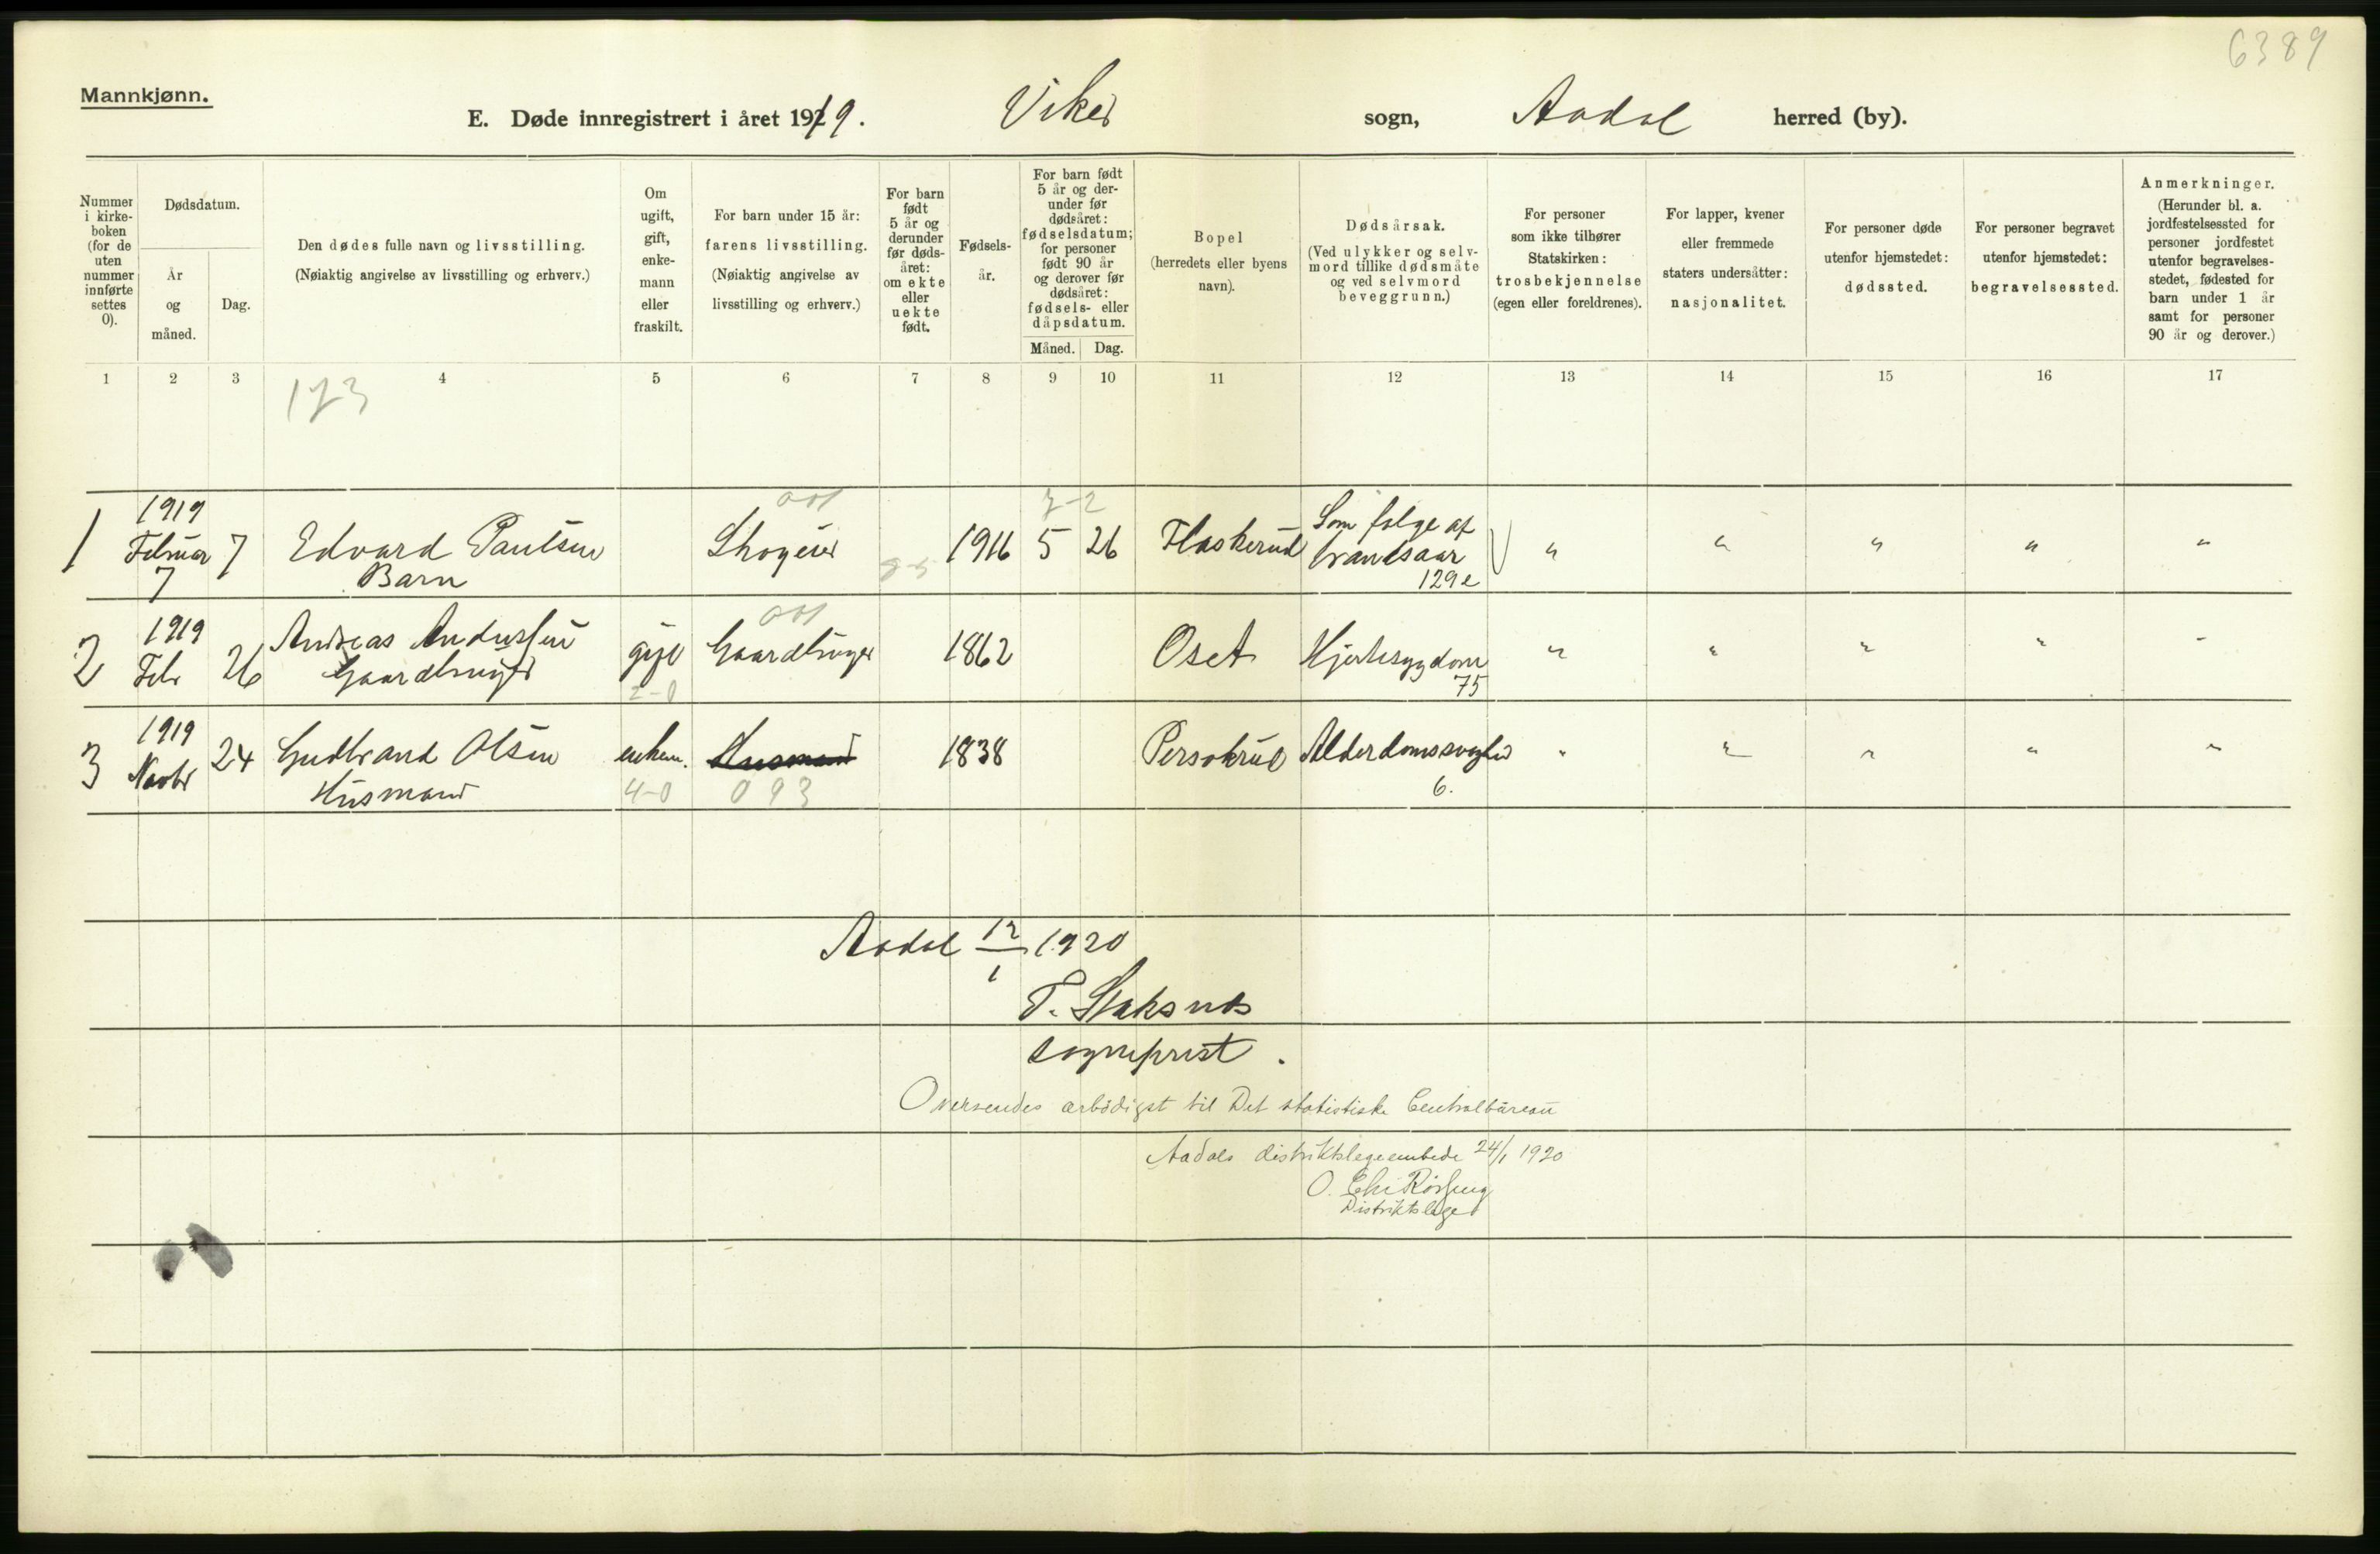 6389
Mannkjønn.
E. Døde innregistrert i året 1919. Viker sogn, Aadal herred (by).
Nummer i kirke- boken (for de uten nummer innførte settes 0).
Dødsdatum.
År og måned.
Dag.
Den dødes fulle navn og livsstilling.
(Nøiaktig angivelse av livsstilling og erhverv.)
Om ugift, gift, enke- mann eller fraskilt.
For barn under 15 år:
farens livsstilling.
(Nøiaktig angivelse av livsstilling og erhverv.)
For barn født 5 år og derunder før døds- året: om ekte eller uekte født.
Fødsels- år.
For barn født 5 år og der- under før dødsåret: fødselsdatum; for personer født 90 år og derover før dødsåret: fødsels- eller dåpsdatum.
Måned. Dag.
Bopel
(herredets eller byens navn).
Dødsårsak.
(Ved ulykker og selv- mord tillike dødsmåte og ved selvmord beveggrunn.)
For personer som ikke tilhører Statskirken: trosbekjennelse (egen eller foreldrenes).
For lapper, kvener eller fremmede staters undersåtter: nasjonalitet.
For personer døde utenfor hjemstedet: dødssted.
For personer begravet utenfor hjemstedet: begravelsessted.
Anmerkninger.
(Herunder bl. a. jordfestelsessted for personer jordfestet utenfor begravelses- stedet, fødested for barn under 1 år samt for personer 90 år og derover.)
1 2 3 4 5 6 7 8 9 10 11 12 13 14 15 16 17
173
1 1919 Februar 7 7 Edvard Paulsen Barn Skogeier 001 1916 7-2 5 26 Flaskerud Som følge af brandsaar 129e " " " " "
2 1919 Febr 26 Andreas Anderssen Gaardbruger gift 2-0 Gaardbruger 001 1862 Oset Hjertesygdom 75 " " " " "
3 1919 Novbr 24 Gudbrand Olsen Husmand enkem. 4-0 Husmand 093 1838 Persokrud Alderdomssvaghed 6. " " " " "
Aadal 12/1 1920
T. Staksnes
sogneprest.
Oversendes ærbödigst til Det statistiske Centralbureau
Aadals distriktslegeembede 24/1 1920
O. Chr Rörbu
Distriktslæge